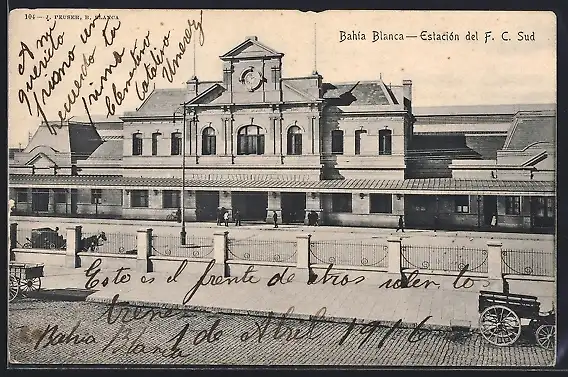 104 - J. PEUSER, B. BLANCA
Bahía Blanca — Estación del F. C. Sud
A mi
querido
primo un
recuerdo tu
prima
Esto es el frente de otros salen lo
trenes
Bahía Blanca 1 de Abril 1916